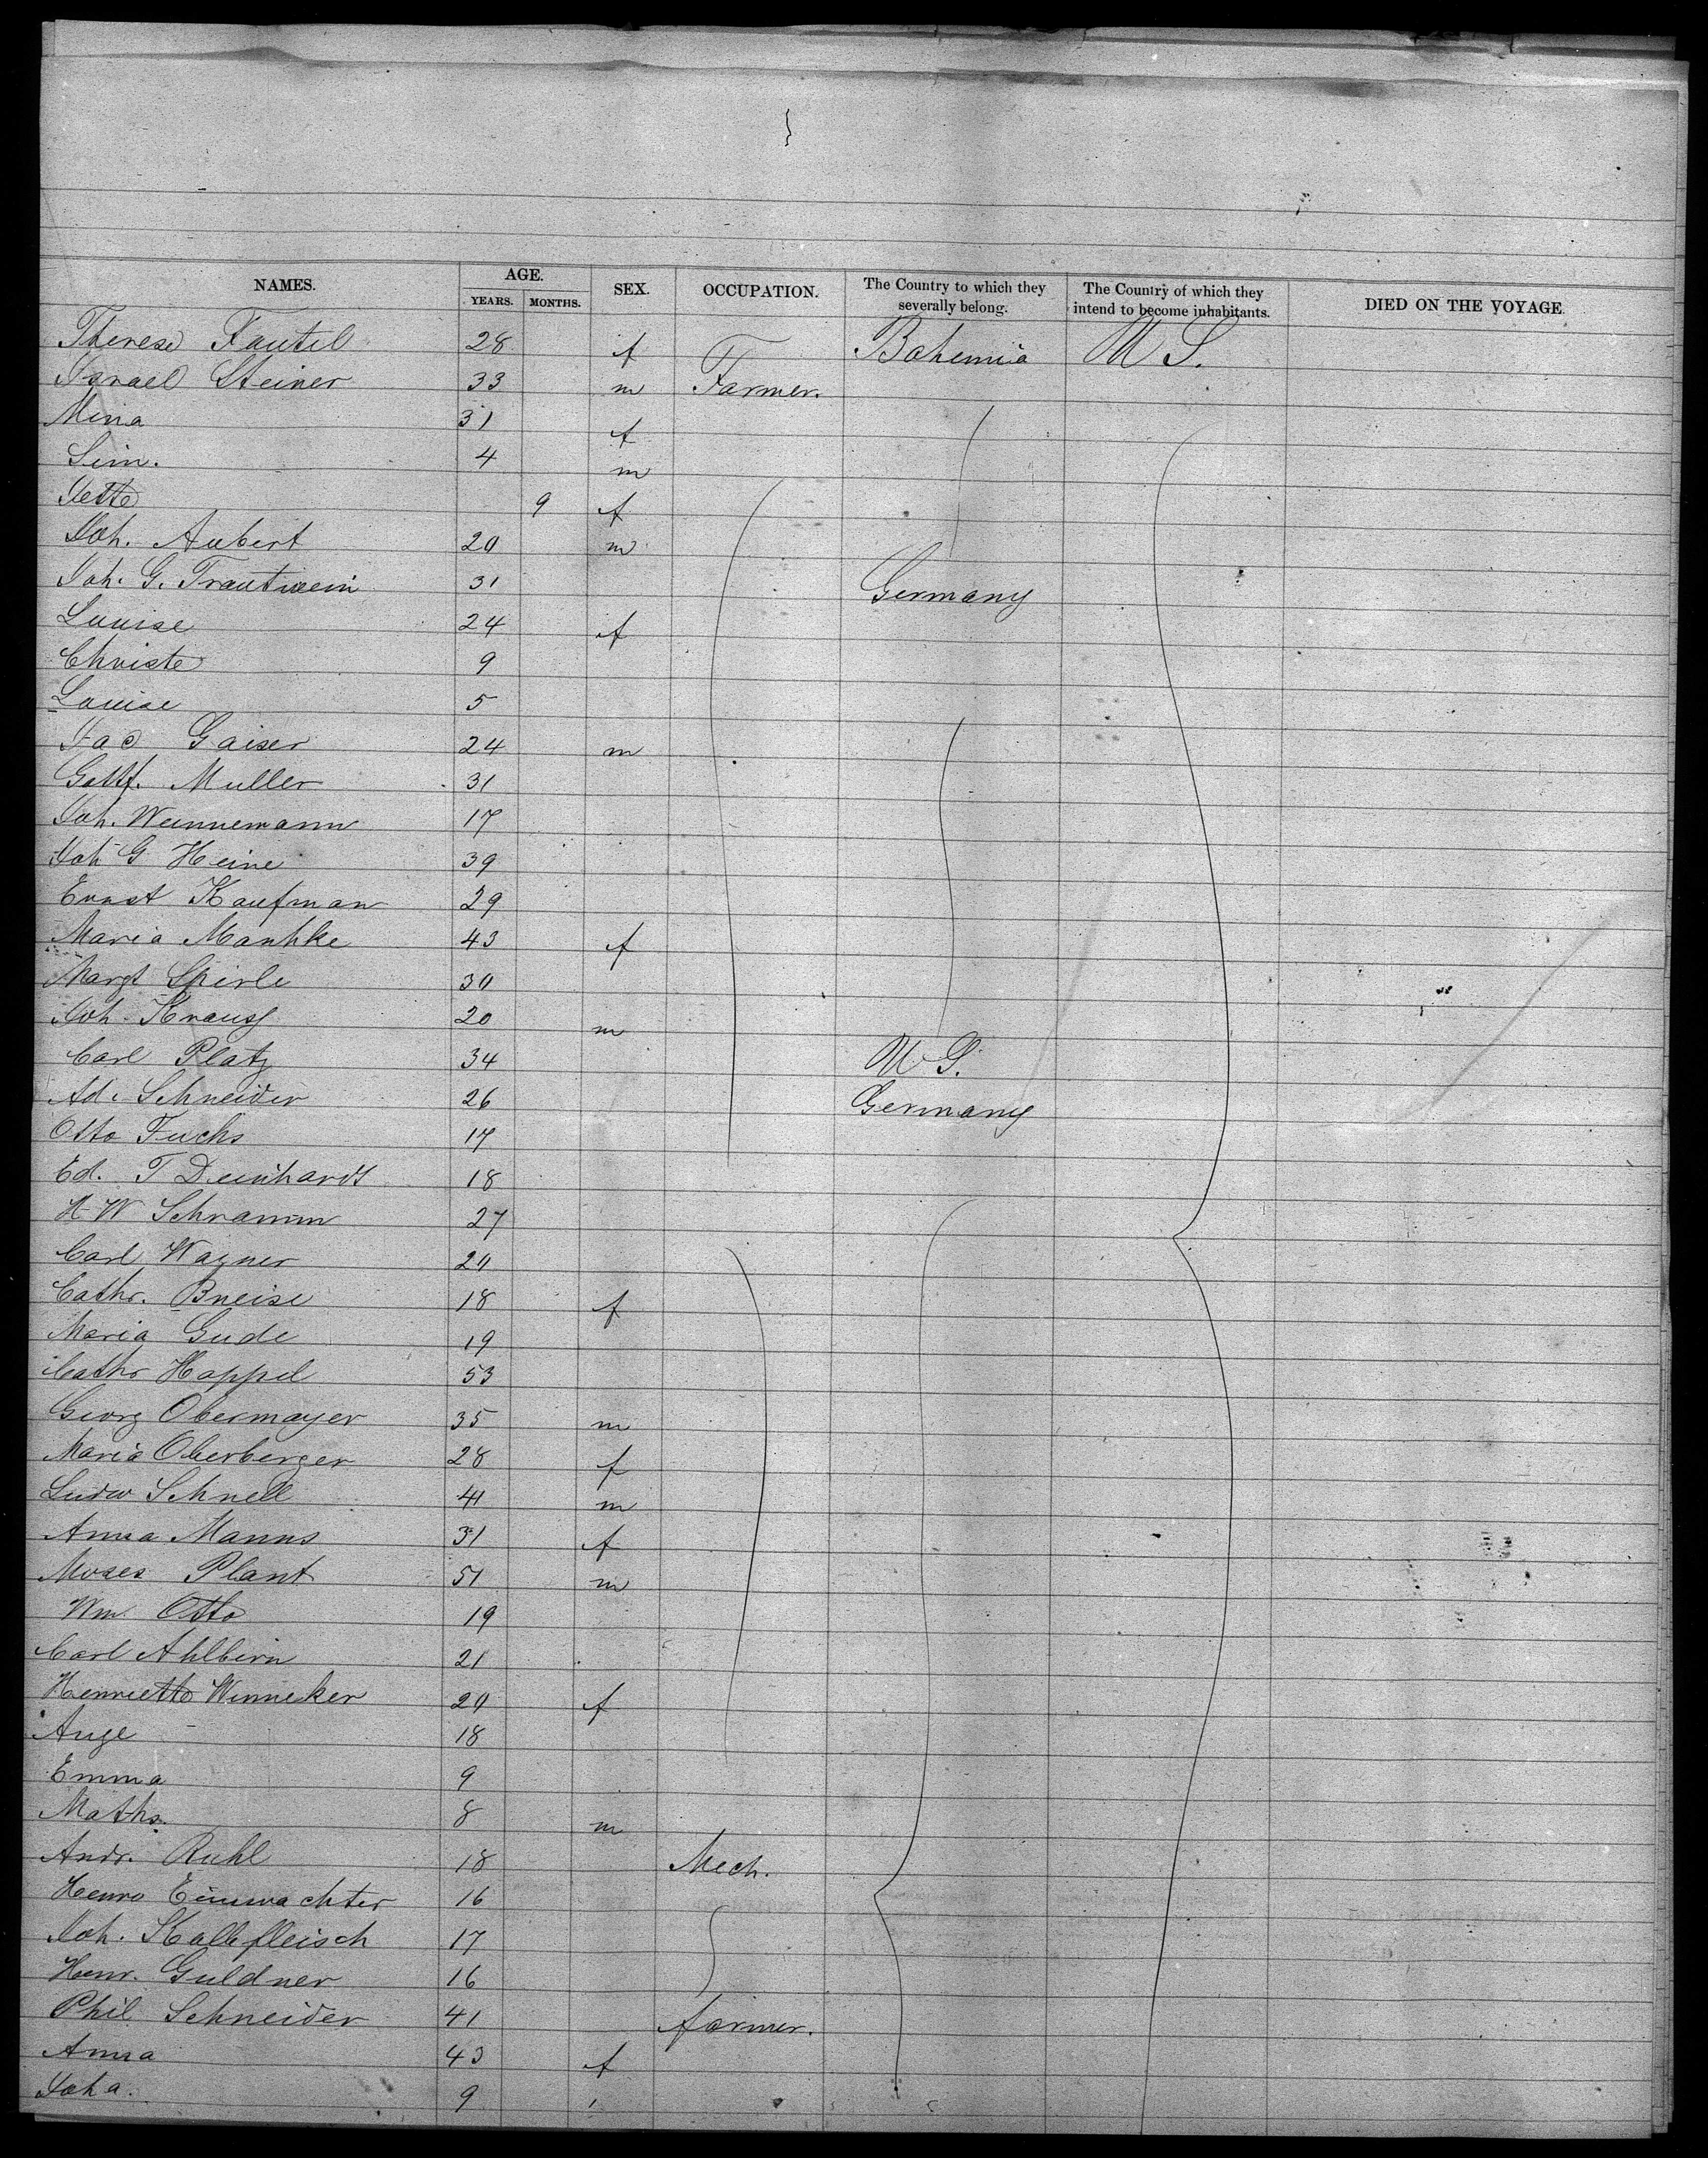 NAMES. AGE. SEX. OCCUPATION. The Country to which they severally belong. The Country of which they intend to become inhabitants. DIED ON THE VOYAGE.
YEARS. MONTHS.
Therese Fautel 28 f Bohemia U S.
Israel Steiner 33 m Farmer.
Mina 31 f
Sim. 4 m
Jette 9 f
Joh. Aubert 20 m
Joh. G. Trautwein 31 Germany
Louise 24 f
Christe 9
Louise 5
Jac Gaiser 24 m
Gottf. Muller 31
Joh. Wennemann 17
Joh G Heine 39
Ernst Kaufman 29
Maria Manhke 43 f
Margt Spirle 30
Joh. Krauss 20 m
Carl Platz 34 U S.
Ad. Schneider 26 Germany
Otto Fuchs 17
Ed. T Deinhardt 18
H W Schramm 27
Carl Wagner 20
Cathr. Bneise 18 f
Maria Gude 19
Cathr Happel 53
Georg Obermayer 35 m
Maria Oberberger 28 f
Ludw Schnell 41 m
Anna Manns 31 f
Moses Plant 51 m
Wm. Otto 19
Carl Ahlbirn 21
Henriette Winneker 20 f
Auge 18
Emma 9
Maths. 8 m
Andr. Ruhl 18 Mech.
Henr Einwachter 16
Joh. Kalbfleisch 17
Henr. Guldner 16
Phil Schneider 41 farmer.
Anna 43 f
Joha. 9